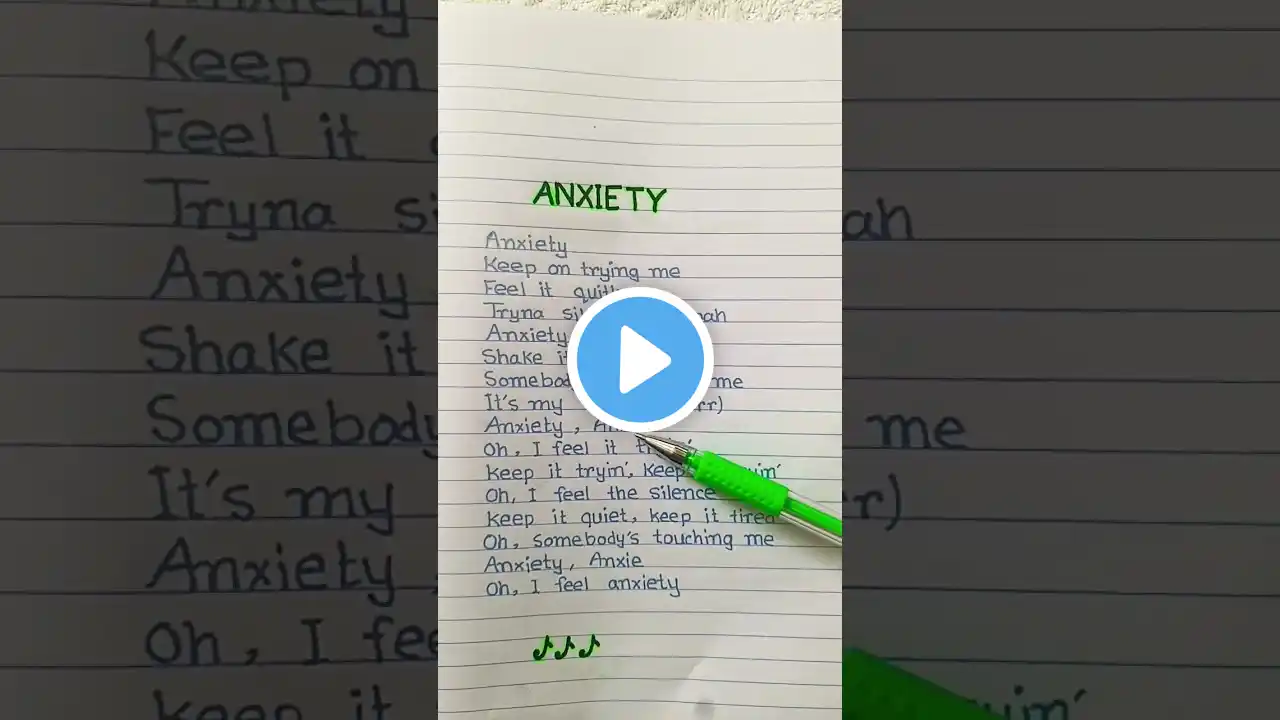 ANXIETY
Anxiety
Keep on trying me
Feel it
Tryna ah
Anxiety
Shake it
Somebody me
It's my rr)
Anxiety,
Oh, I feel it
Keep it tryin',
Oh, I feel the silence
Keep it quiet, keep it tired
Oh, Somebody's touching me
Anxiety, Anxie
Oh, I feel anxiety